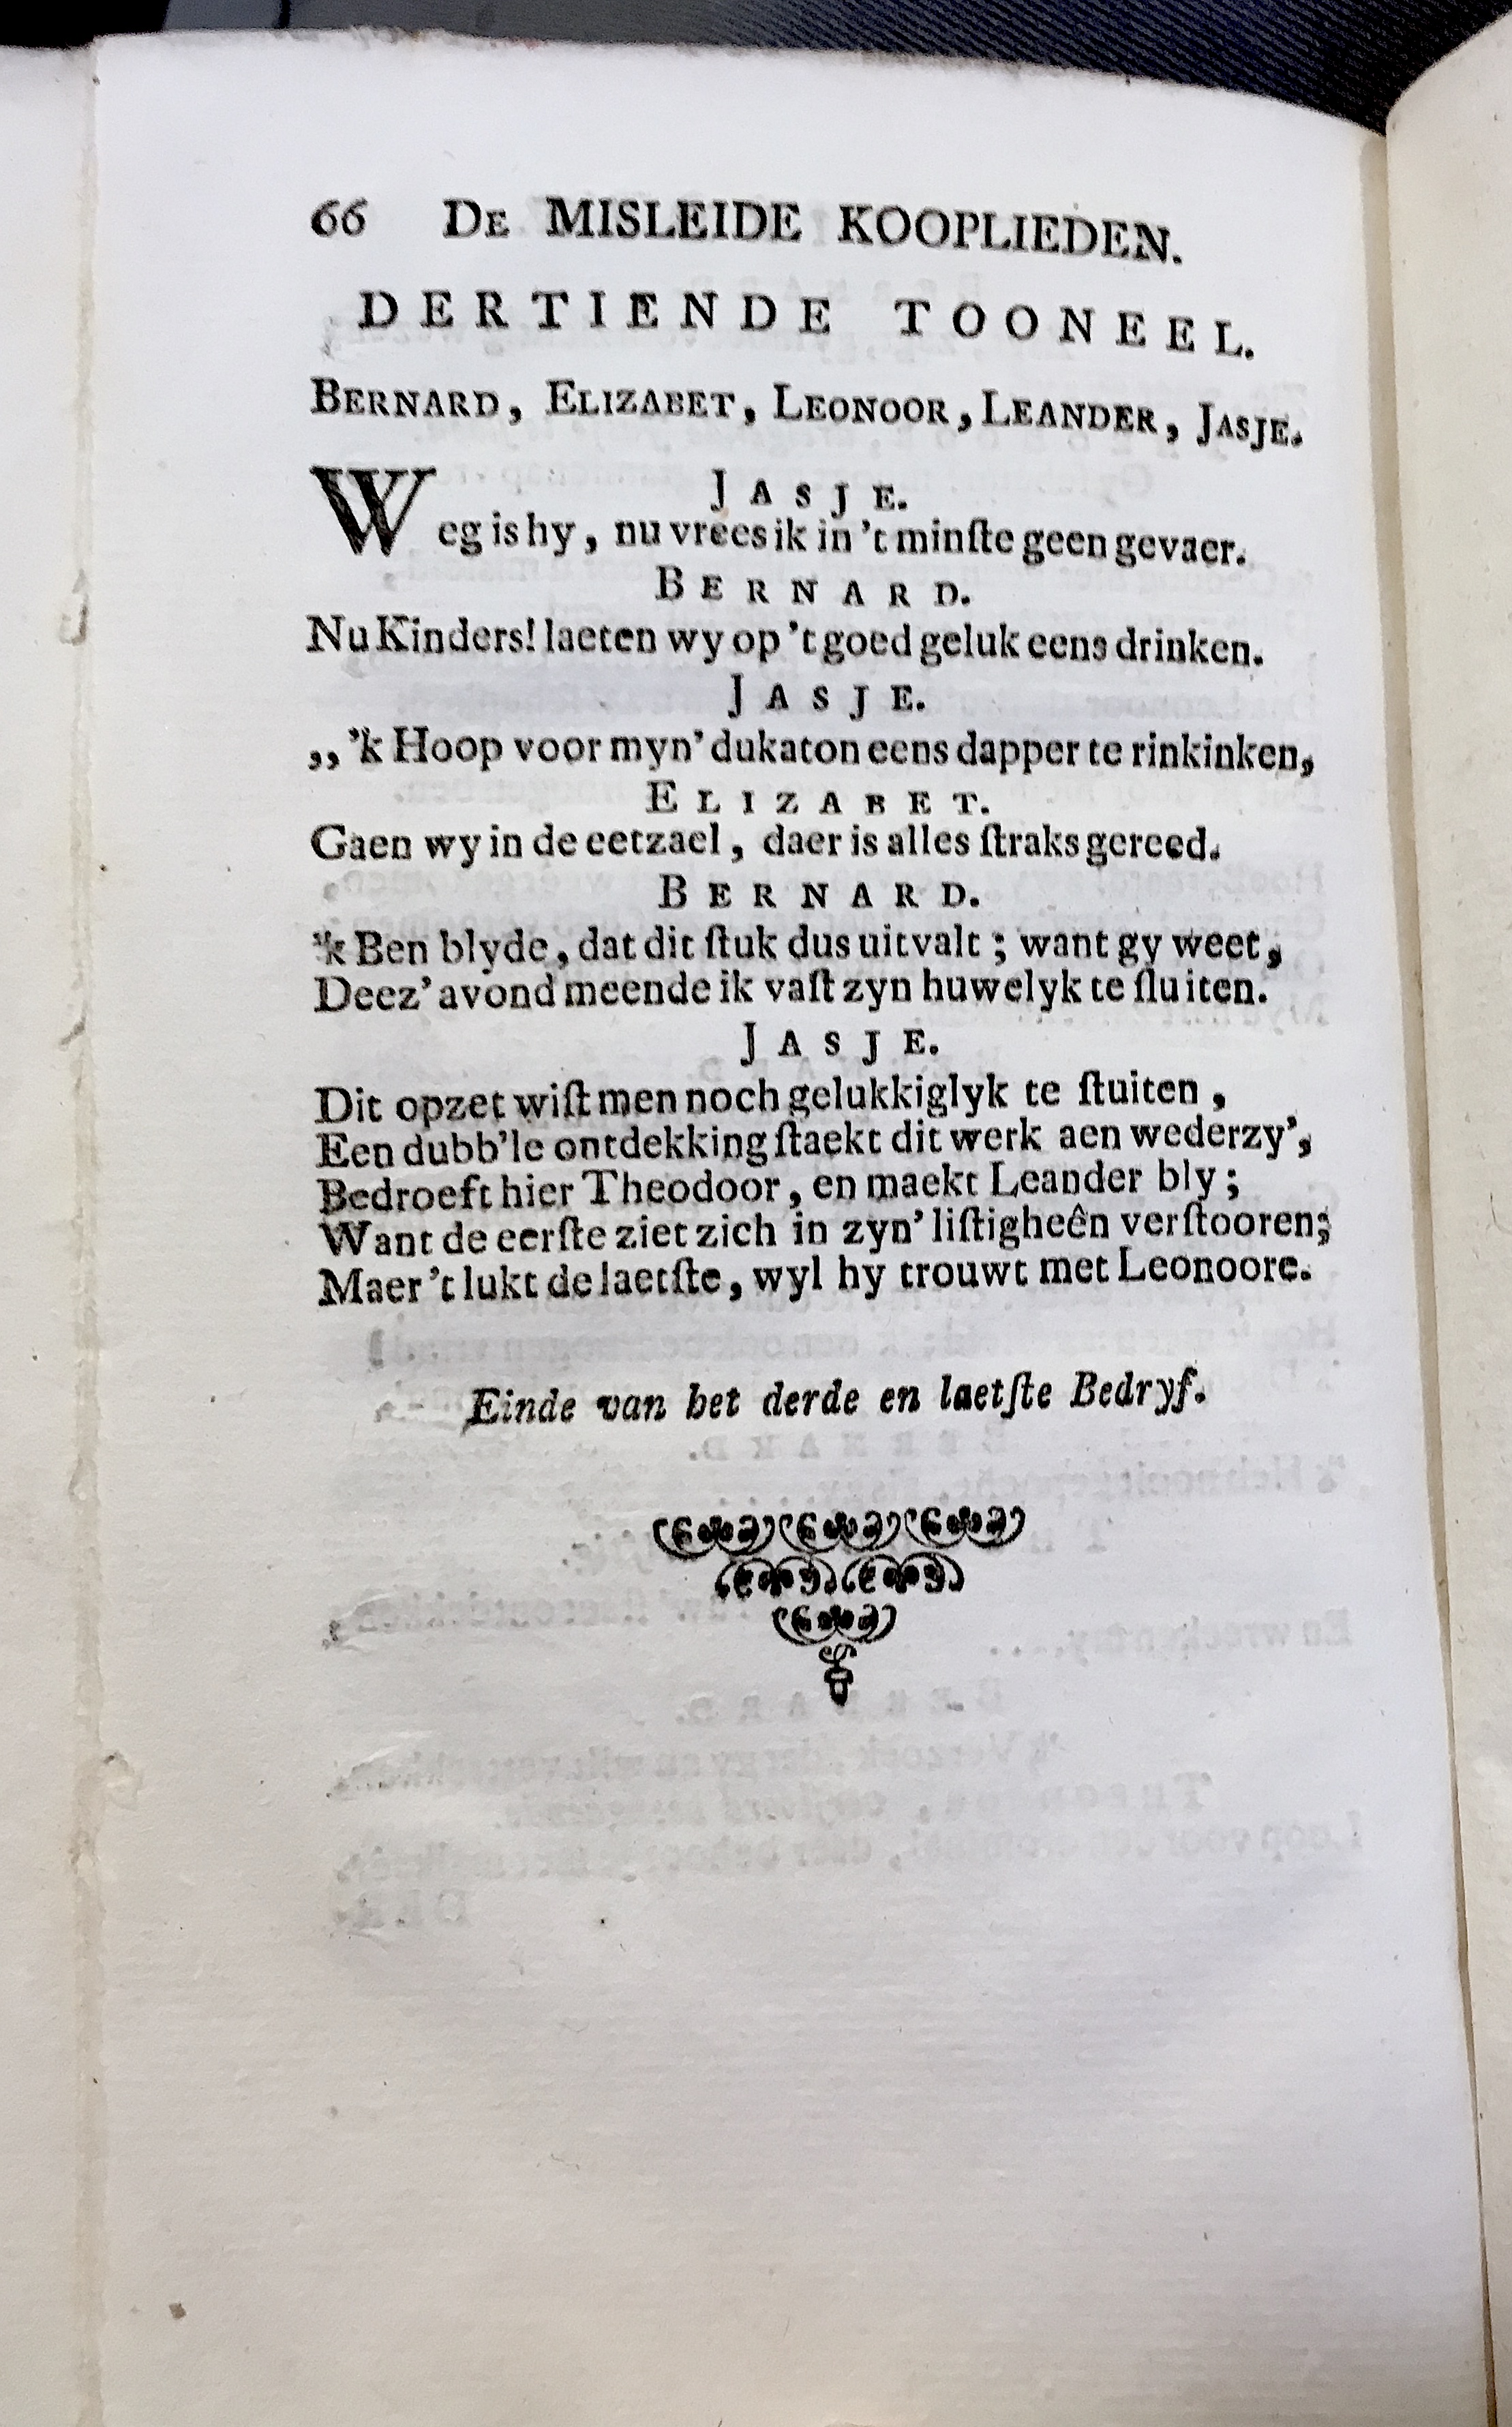 66 DE MISLEIDE KOOPLIEDEN.
DERTIENDE TOONEEL.
BERNARD, ELIZABET, LEONOOR, LEANDER, JASJE.
JASJE.
Weg is hy, nu vrees ik in 't minſte geen gevaer.
BERNARD.
Nu Kinders! laeten wy op 't goed geluk eens drinken.
JASJE.
,, 'k Hoop voor myn' dukaton eens dapper te rinkinken,
ELIZABET.
Gaen wy in de eetzael, daer is alles ſtraks gereed.
BERNARD.
'k Ben blyde, dat dit ſtuk dus uitvalt; want gy weet,
Deez' avond meende ik vaſt zyn huwelyk te ſluiten.
JASJE.
Dit opzet wiſt men noch gelukkiglyk te ſtuiten,
Een dubb'le ontdekking ſtaekt dit werk aen wederzy',
Bedroeft hier Theodoor, en maekt Leander bly;
Want de eerſte ziet zich in zyn' liſtigheên verſtooren;
Maer 't lukt de laetſte, wyl hy trouwt met Leonoore.
Einde van het derde en laetſte Bedryf.